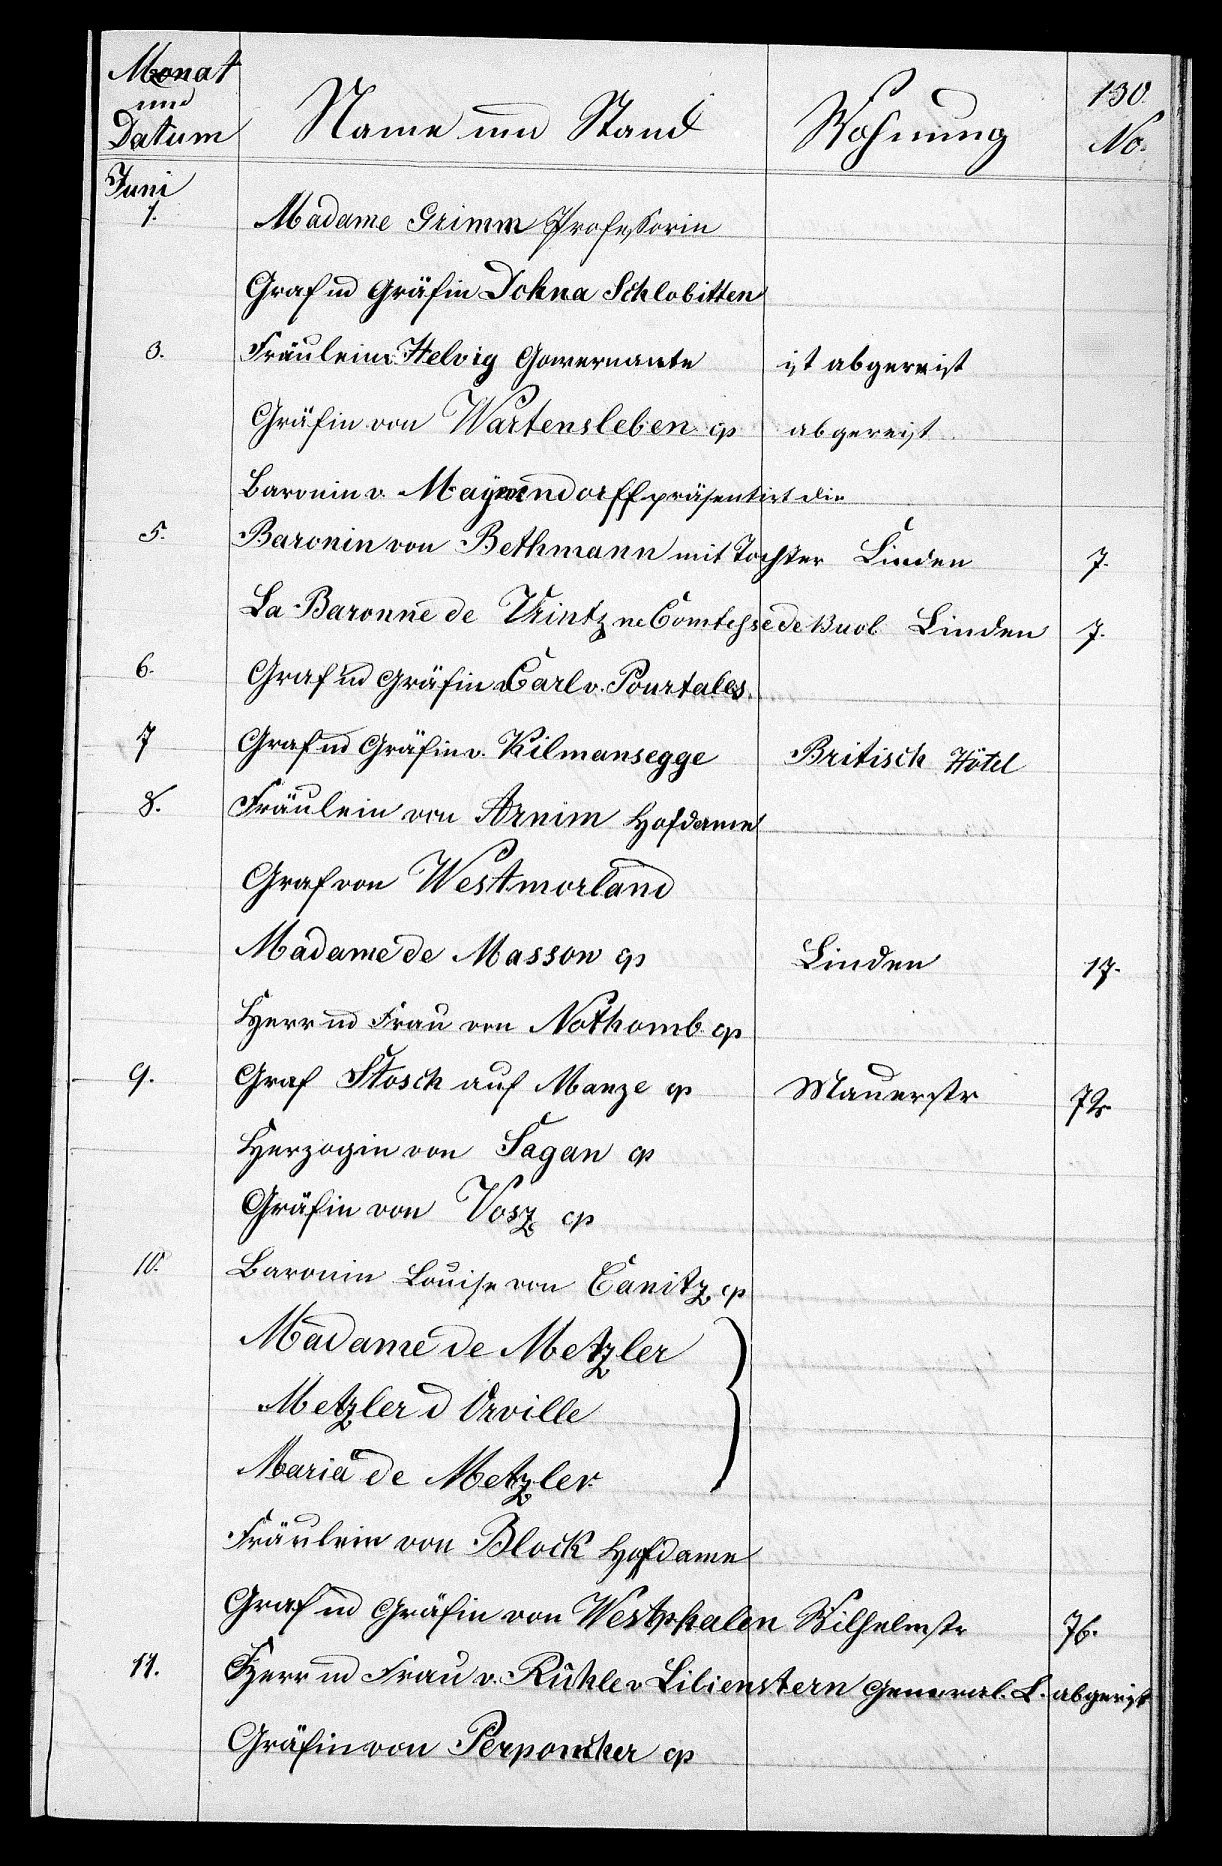 Monat und Datum Name und Stand Wohnung 130. No.
Juni
1. Madame Grimm Professorin
Graf und Gräfin Dohna Schlobitten
3. Fräulein v. Helvig Gouvernante ist abgereist
Gräfin von Wartensleben cp abgereist
Baronin v. Mayendorff präsentirt die
5. Baronin von Bethmann mit Tochter Linden 7.
La Baronne de Vrintz ne Comtesse de Buol Linden 7.
6. Graf und Gräfin Carl v. Pourtales.
7 Graf und Gräfin v. Kilmansegge Britisch Hôtel
8. Fräulein von Arnim Hofdame
Graf von Westmorland
Madame de Masson cp Linden 17.
Herr und Frau von Nothomb cp
9. Graf Stosch auf Manze cp Mauerstr
Herzogin von Sagan cp
Gräfin von Vosz cp
10. Baronin Louise von Canitz cp
Madame de Metzler
Metzler d Orville
Maria de Metzler.
Fräulein von Block Hofdame
Graf und Gräfin von Westphalen Wilhelmstr 76.
11. Herr und Frau v. Rühle v Lilienstern General. L. abgereist
Gräfin von Perponcher cp